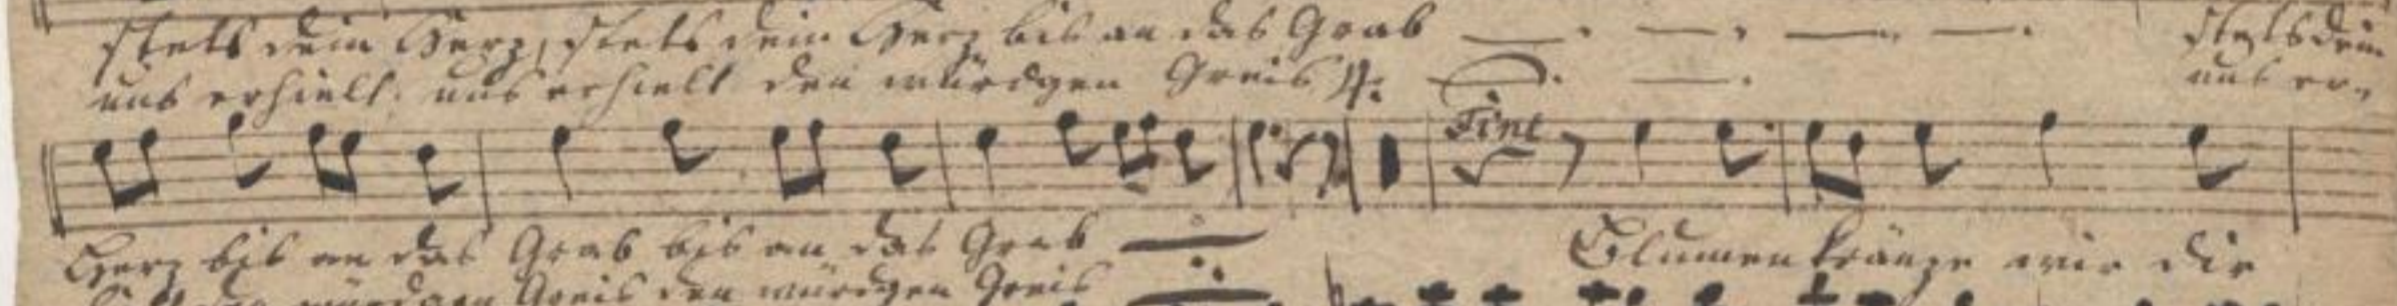 stets dein Herz, stets dein Herz bis an das Grab stets dein
uns erhielt. uns erhielt den würdgen Greis uns er-
Fine
Herz bis an das Grab bis an das Grab Blumenkränze wir dir
den würdgen Greis den würdgen Greis